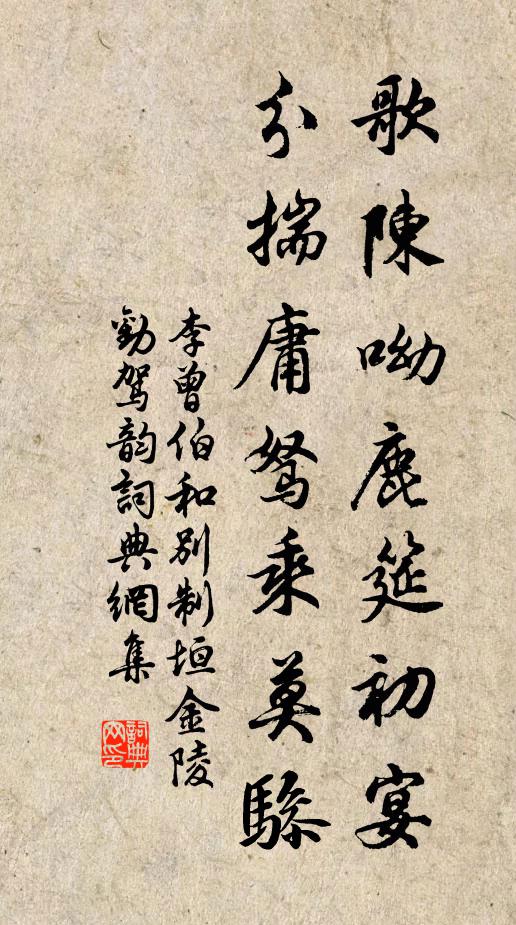 歌陳呦鹿筵初宴
分揣庸駑乘莫驂
李曾伯和别制垣金陵
勸駕韵詞典網集
詞典網印